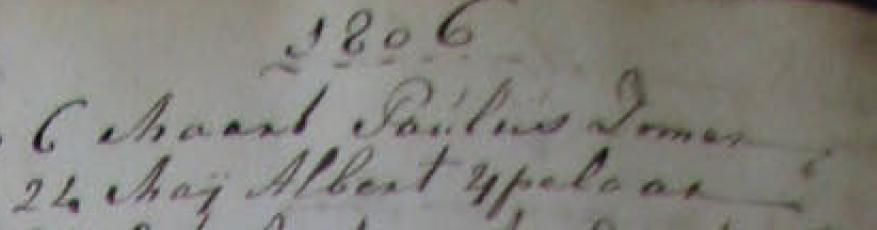 1806
6 Maart Paúlus Domer
24 Maÿ Albert Ypelaar